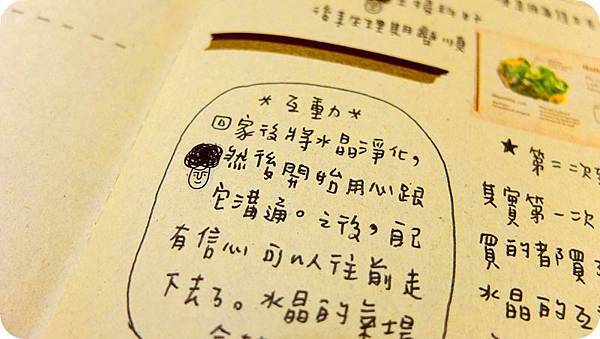 後生理期變順
*互動力*
回家後將水晶淨化,
然後開始用心跟
它溝通。之後,自己
有信心可以往前走
下去了。水晶的氣場
★第二次
其實第一次
買的都買
水晶的互